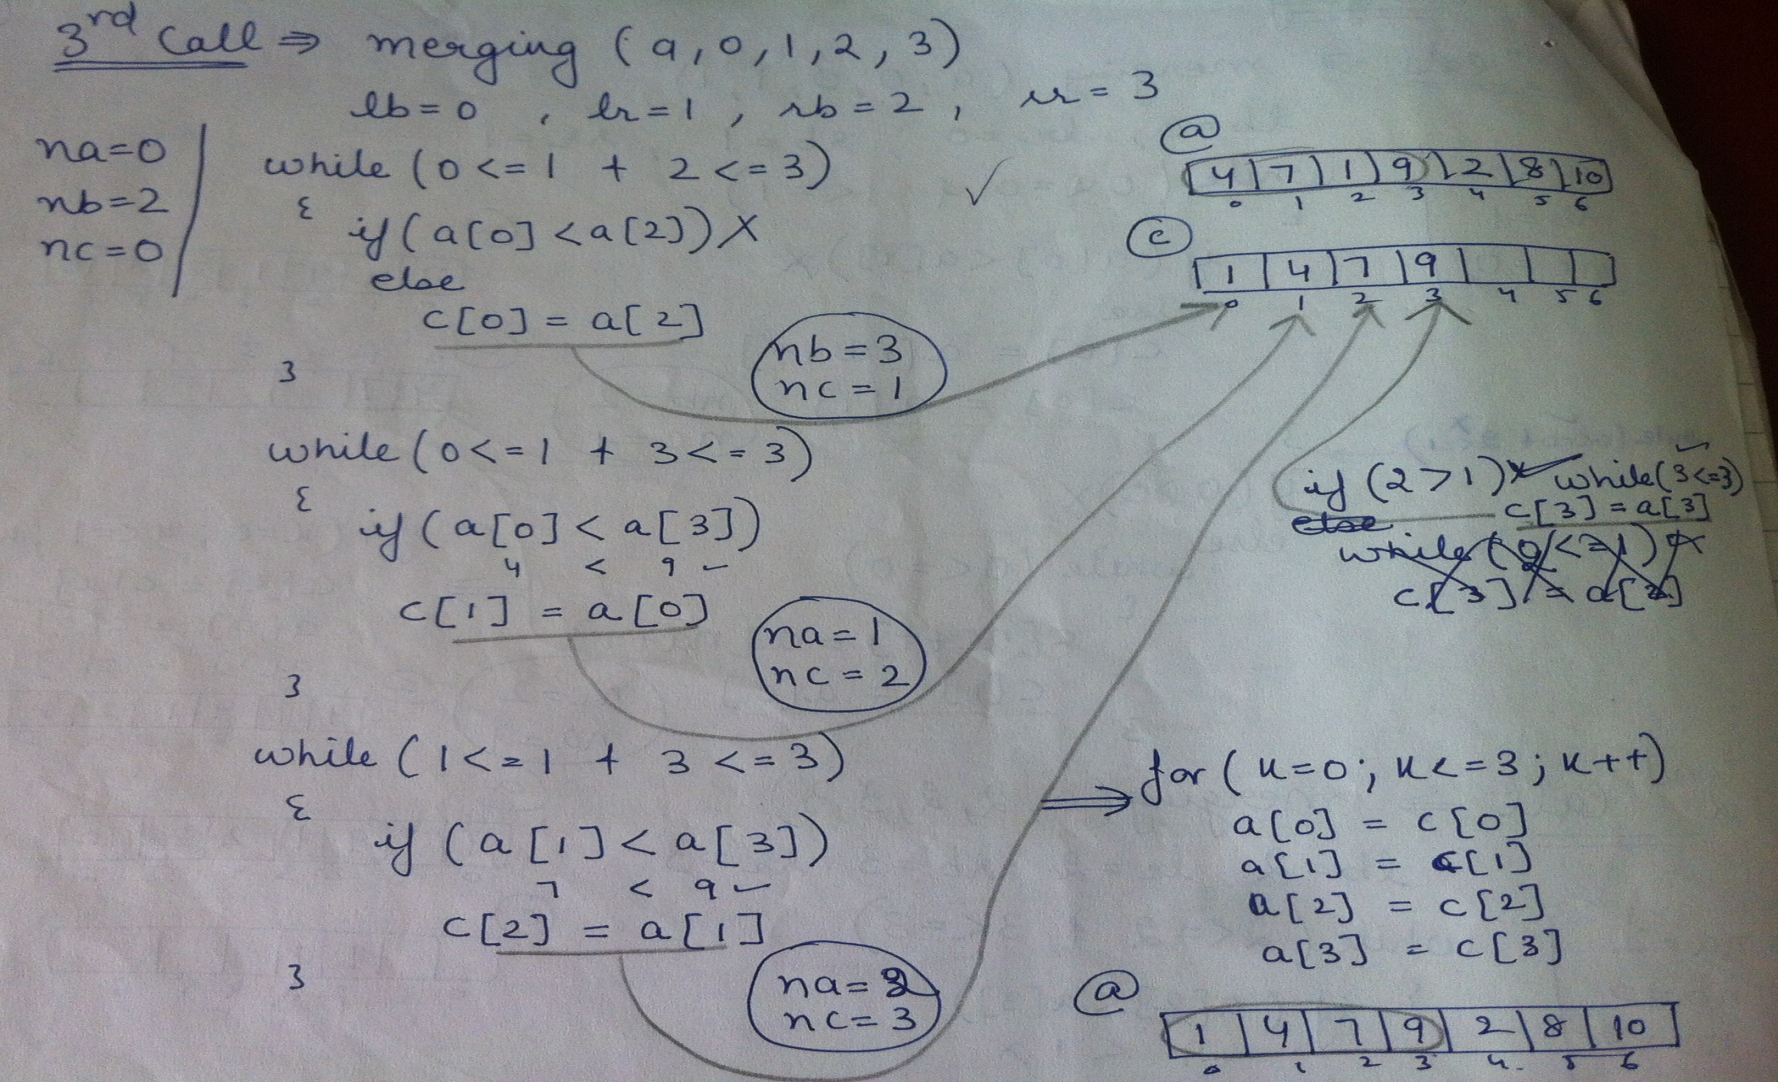 3rd Call ⇒ merging (a, 0, 1, 2, 3)
lb=0 , lr=1 , rb=2 , rr=3
na=0
nb=2
nc=0
while (0<=1 + 2<=3)
{
if (a[0] <a[2]) X
else
c[0] = a[2]
nb=3
nc=1
}
while (0<=1 + 3<=3)
{
if (a[0] < a[3])
4 < 9 ✓
c[1] = a[0]
na=1
nc=2
}
while (1<=1 + 3<=3)
{
if (a[1] < a[3])
7 < 9 ✓
c[2] = a[1]
na=2
nc=3
}
✓
a
4 7 1 9 2 8 10
0 1 2 3 4 5 6
c
1 4 7 9
0 1 2 3 4 5 6
if (2>1) ✓ while(3<=3) ✓
c[3] = a[3]
else
while (2<=1) X
c[3] = a[2]
⇒ for (k=0; k<=3; k++)
a[0] = c[0]
a[1] = c[1]
a[2] = c[2]
a[3] = c[3]
a
1 4 7 9 2 8 10
0 1 2 3 4 5 6